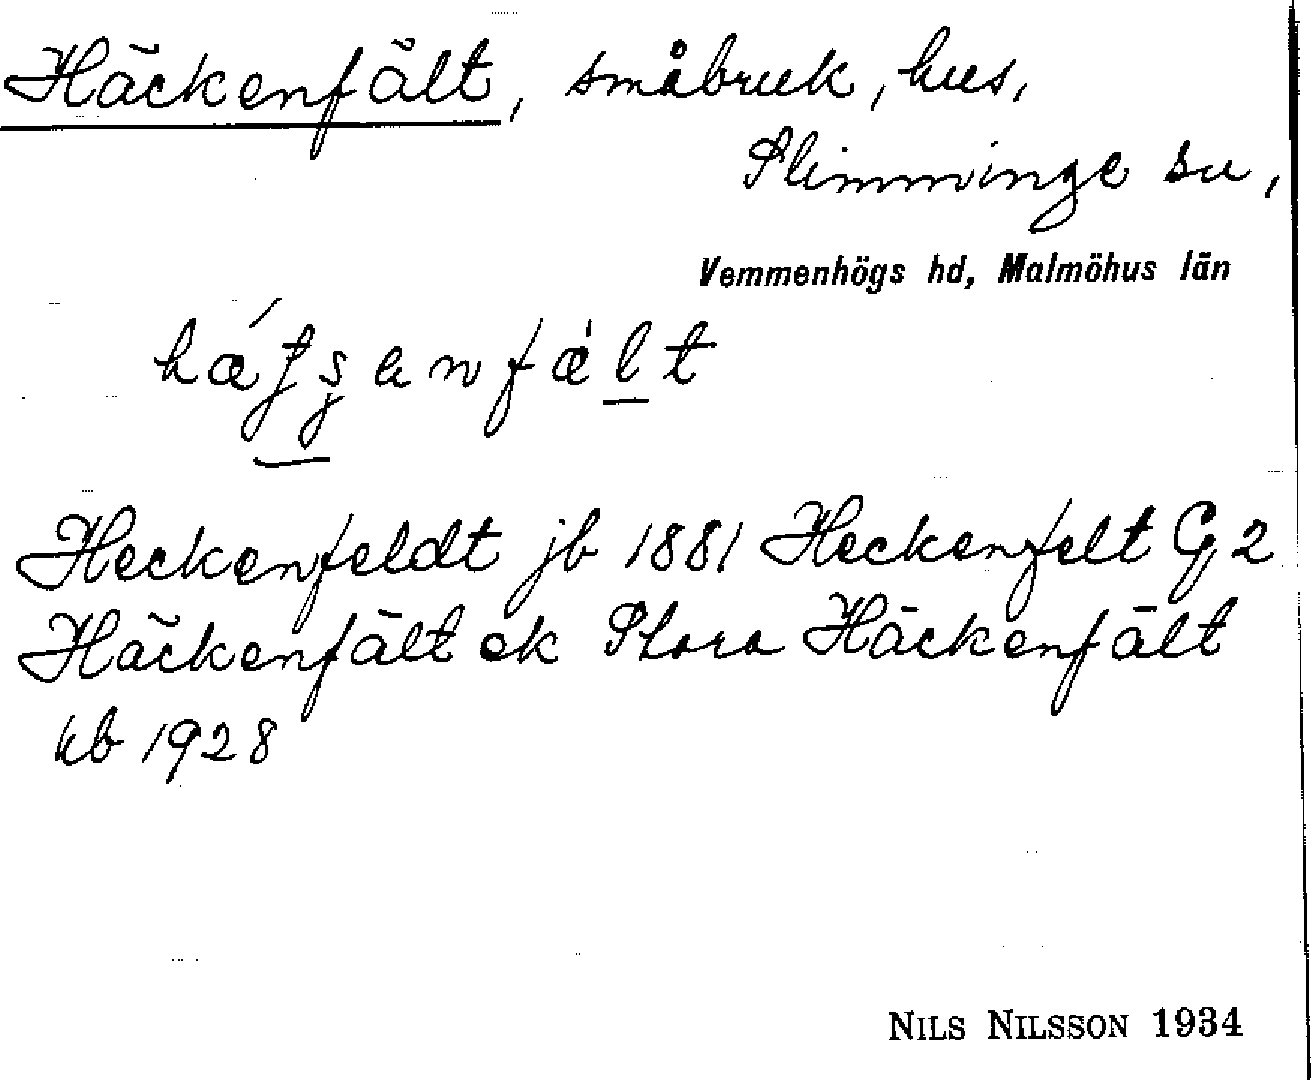 Häckenfält, småbruk, hus,
Slimminge sn,
Vemmenhögs hd, Malmöhus län
Heckenfeldt jb 1881 Heckenfelt G 2
Häckenfält ek Stora Häckenfält
kb 1928
NILS NILSSON 1934